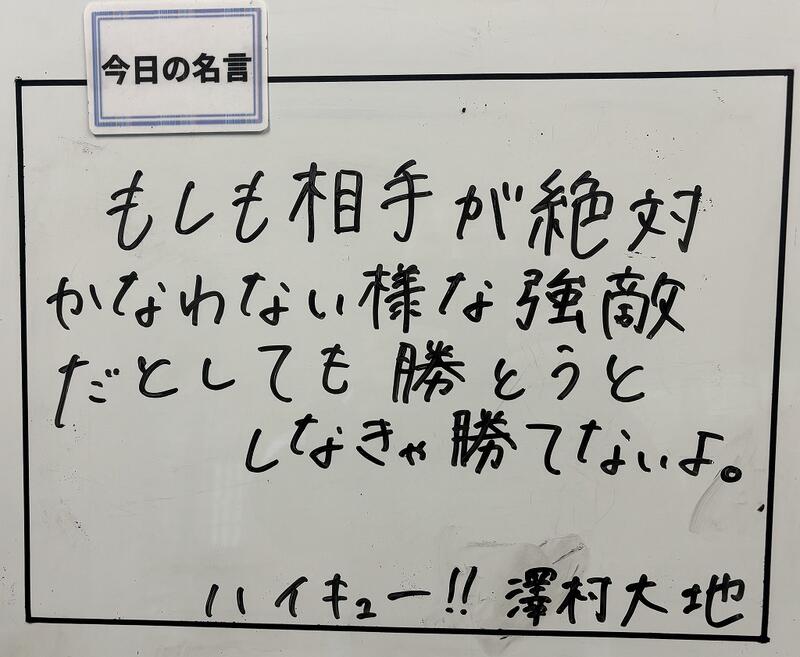 今日の名言
もしも相手が絶対
かなわない様な強敵
だとしても勝とうと
しなきゃ勝てないよ。
ハイキュー!! 澤村大地